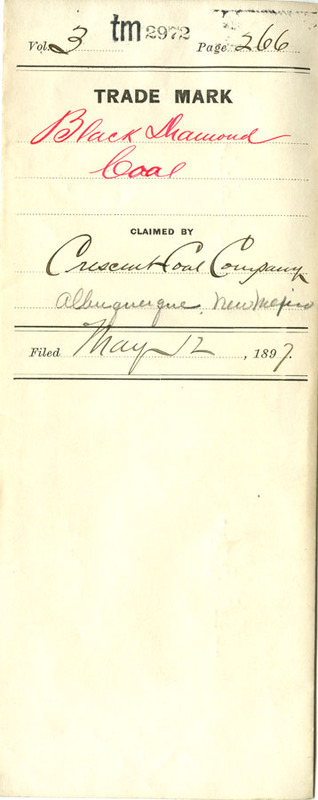 tm 2972
Vol. 3 Page 266
TRADE MARK
Black Diamond
Coal
CLAIMED BY
Crescent Coal Company
Albuquerque, New Mexico
Filed May 12, 1897.